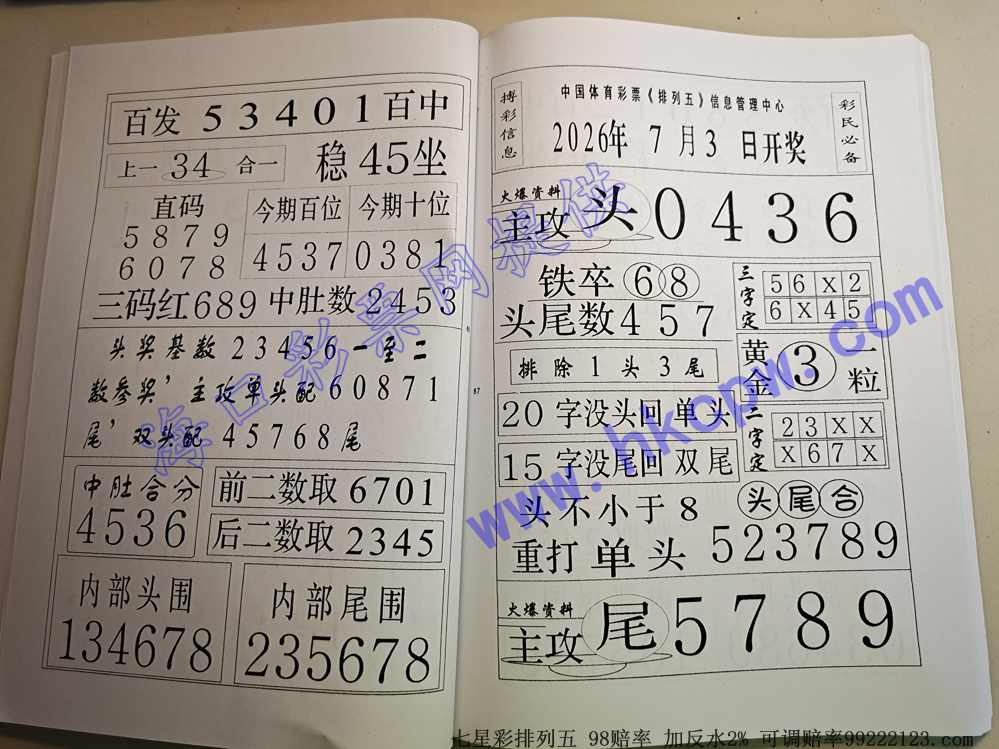 百发 53401 百中
上一 34 合一 稳 45 坐
直码
5879
6078
今期百位 今期十位
4537 0381
三码红689 中肚数2453
头奖基数23456一至二
数参奖，主攻单头配60871
尾，双头配45768尾
中肚合分
4536
前二数取6701
后二数取2345
内部头围
134678
内部尾围
235678
87
搏彩信息
中国体育彩票《排列五》信息管理中心
2026年 7月3 日开奖
彩民必备
火爆资料
主攻 头 0436
铁卒 68
头尾数 457
三字定
56X2
6X45
排除1头3尾
黄金 3 一粒
20字没头回单头
15字没尾回双尾
二字定
23XX
X67X
头不小于8
头尾合
重打单头 523789
火爆资料
主攻 尾 5789
海口彩票网提供
www.hkcpw.com
七星彩排列五 98赔率 加反水2% 可调赔率99222123.com